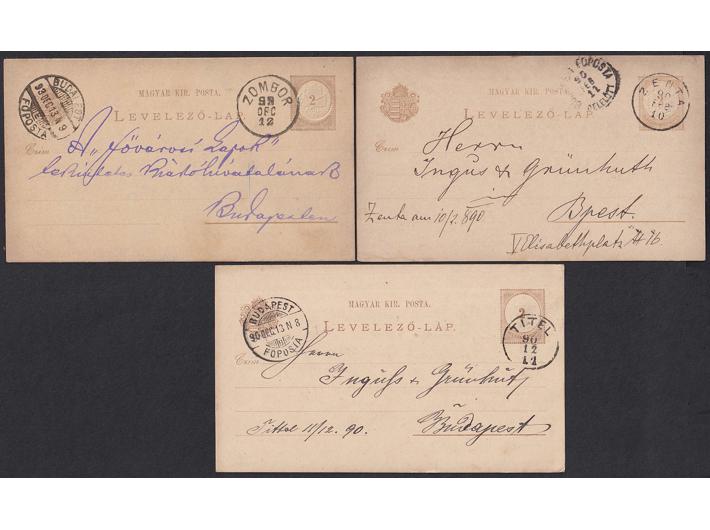 BUDAPEST
93 DEC. 13 N 9
FŐPOSTA
MAGYAR KIR. POSTA.
LEVELEZŐ-LAP.
ZOMBOR
93
DEC
12
2
Czim
A „Fővárosi Lapok"
tekintetes Kiadóhivatalának
Budapesten
MAGYAR KIR. POSTA.
LEVELEZŐ-LAP.
FŐPOSTA
ZENTA
90
FEB
10
Czim
Herrn
Ingus & Grünhuth
Bpest.
Zenta am 10/2. 890
V Elisabethplatz № 16.
MAGYAR KIR. POSTA.
LEVELEZŐ-LAP.
BUDAPEST
90 DEC. 13 N 8
FŐPOSTA
2
TITEL
90
12
11
Czim
Herrn
Inguss & Grünhut
Budapest
Tittel 11/12. 90.